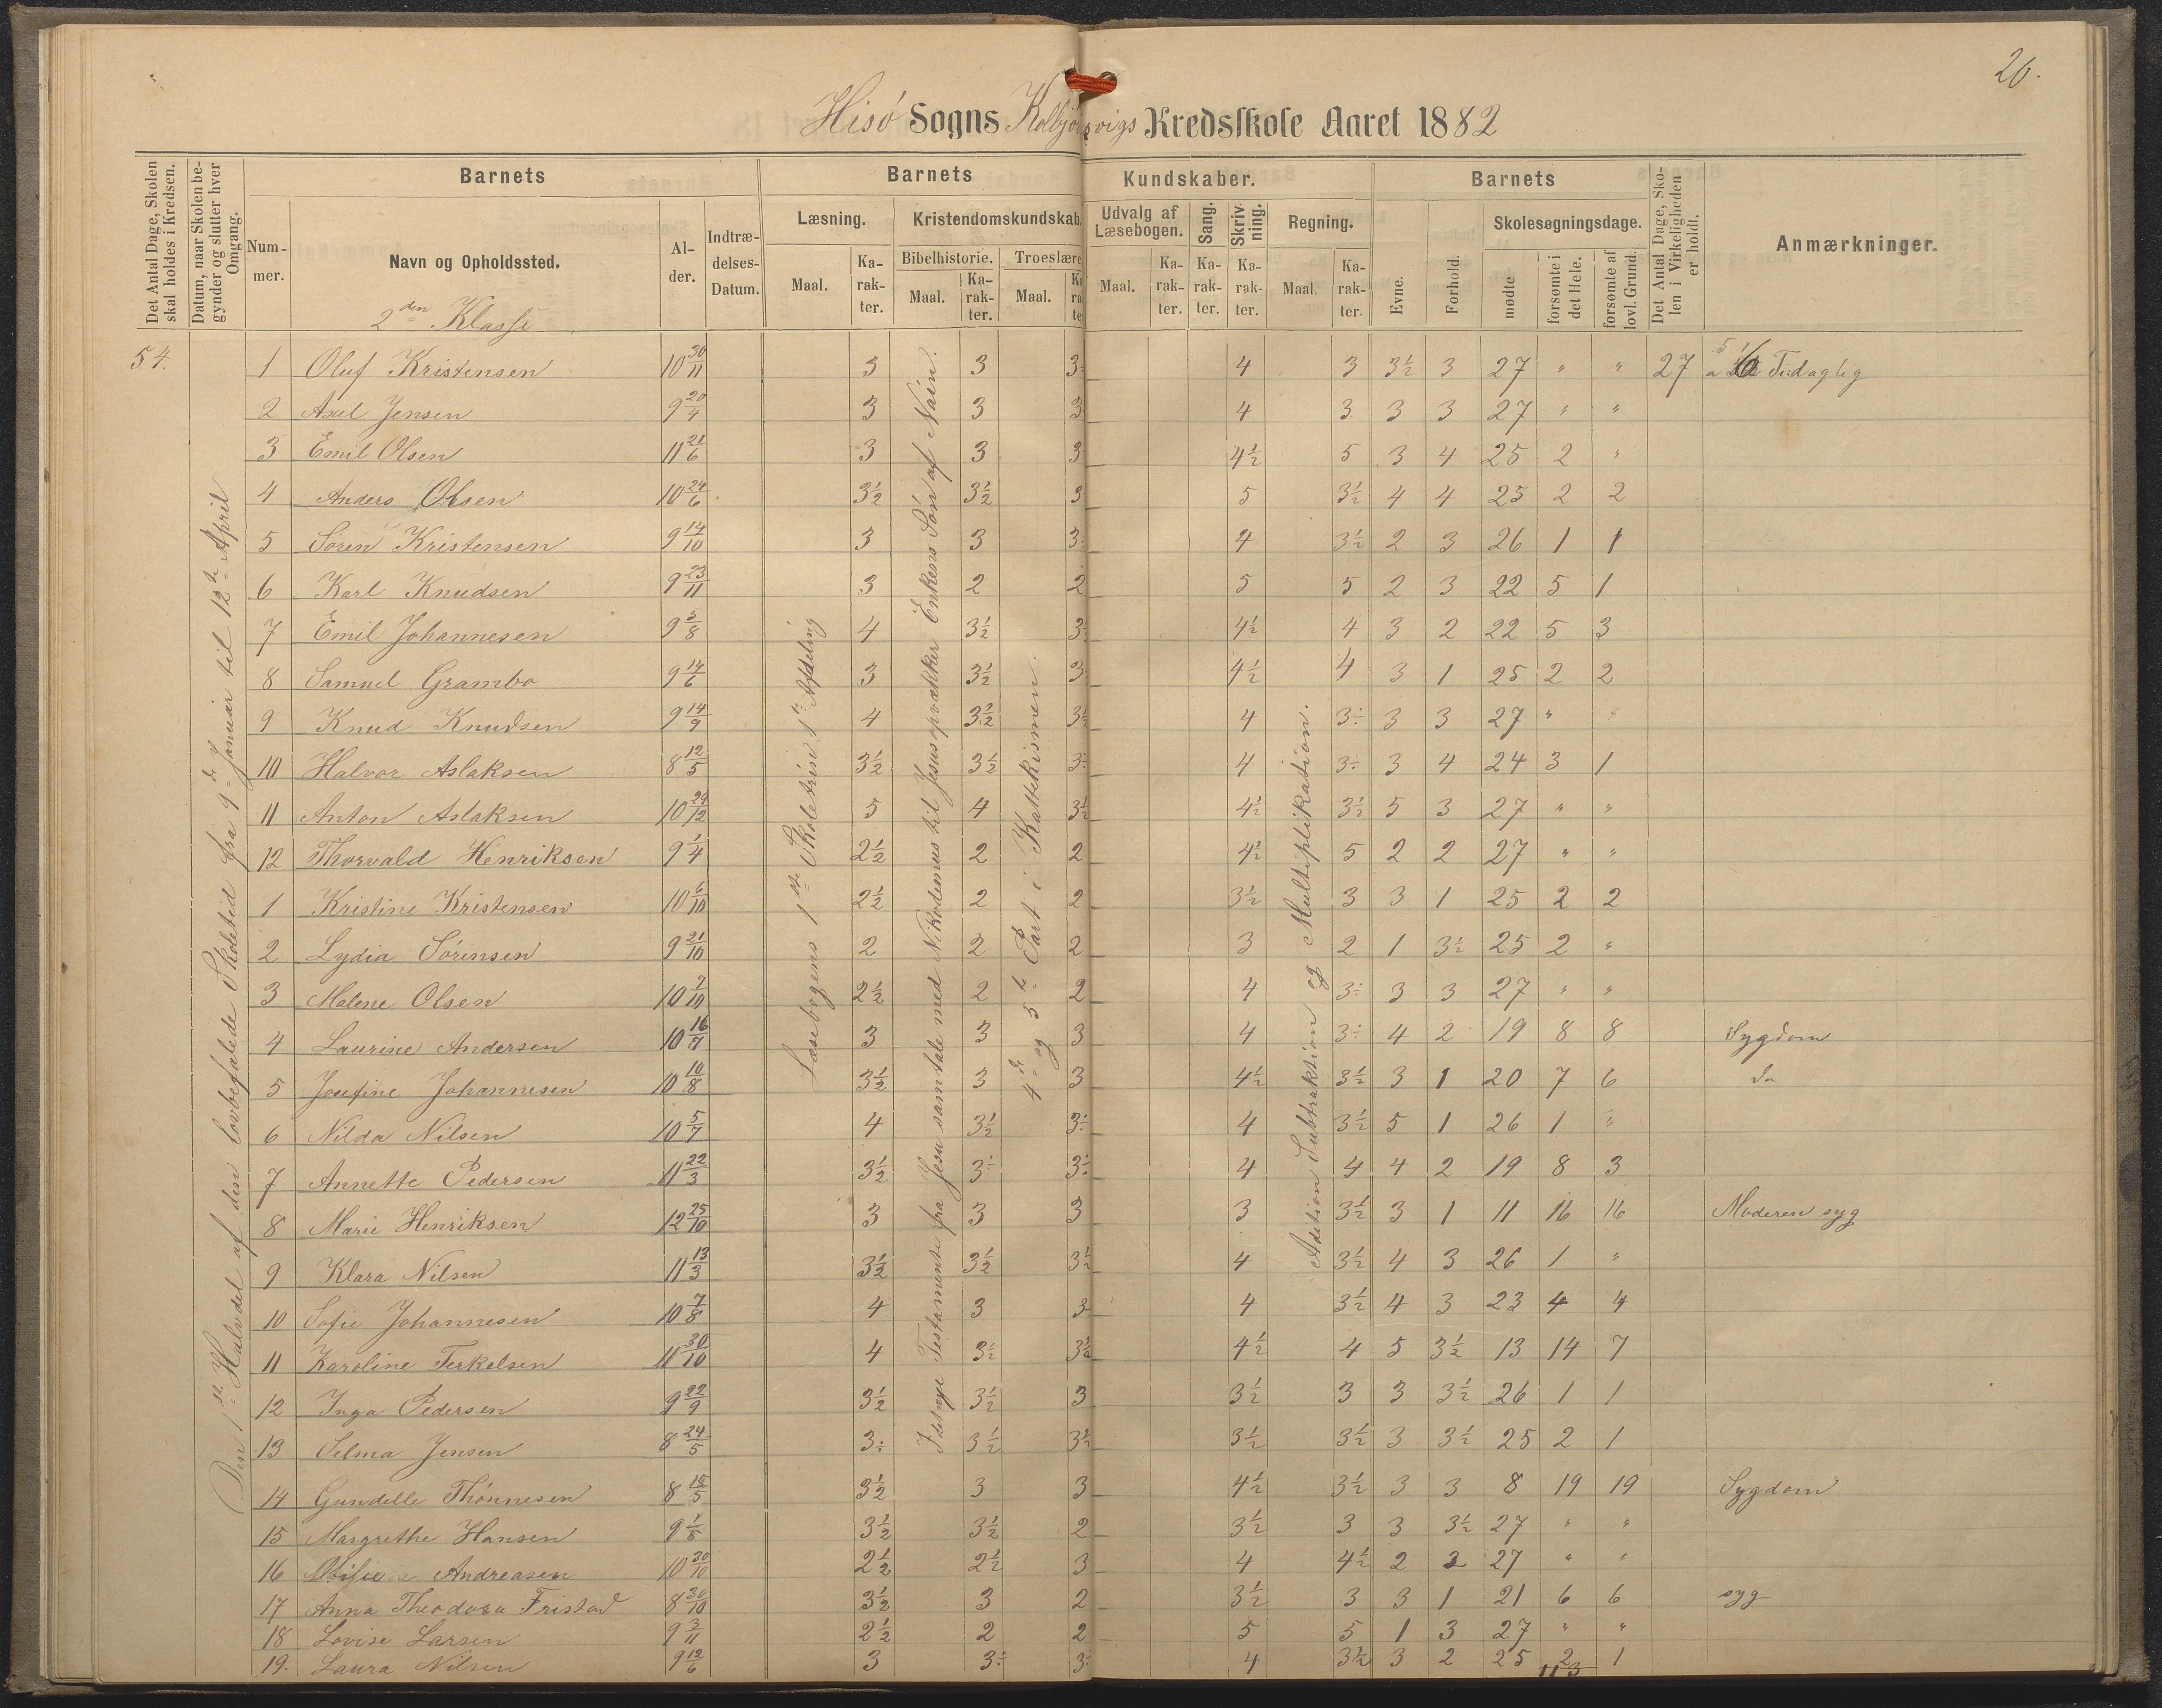 26.
Hisø Sogns Kolbjørnsvigs Kredsskole Aaret 1882
Det Antal Dage, Skolen skal holdes i Kredsen.
Datum, naar Skolen begynder og slutter hver Omgang.
Barnets
Nummer.
Navn og Opholdssted.
Alder.
Indtrædelses-Datum.
Barnets Kundskaber.
Læsning.
Maal.
Karakter.
Kristendomskundskab.
Bibelhistorie.
Maal.
Karakter.
Troeslære
Maal.
Udvalg af Læsebogen.
Maal.
Karakter.
Sang.
Karakter.
Skrivning.
Karakter.
Regning.
Maal.
Karakter.
Barnets
Evne.
Forhold.
Skolesøgningsdage.
mødte
forsømte i det Hele.
forsømte af lovl. Grund.
Det Antal Dage, Skolen i Virkeligheden er holdt.
Anmærkninger.
2den Klasse
54.
Den 1ste Halvdel af den lovbefalede Skoletid fra 9de Januar til 12te April
Læsebogens 1ste Skoletrin 1te Afdeling
I det nye Testamente fra Jesu samtale med Nikodemus til Jesus opvækker Enkens Søn af Nain.
4de og 5te Part i Kattekismen.
Adition Subtraktion og Multiplikation.
1 Oluf Kristensen 10 30/11 3 3 3 4 3 3½ 3 27 " " 27 Tidaglig
2 Axel Jensen 9 20/4 3 3 3 4 3 3 3 27 " "
3 Emil Olsen 11 21/6 3 3 3 4½ 5 3 4 25 2 "
4 Anders Olsen 10 24/6 3½ 3½ 3 5 3½ 4 4 25 2 2
5 Søren Kristensen 9 14/10 3 3 3 4 3½ 2 3 26 1 1
6 Karl Knudsen 9 23/11 3 2 2 5 5 2 3 22 5 1
7 Emil Johannesen 9 5/8 4 3½ 3 4½ 4 3 2 22 5 3
8 Samuel Grambo 9 14/6 3 3½ 3 4½ 4 3 1 25 2 2
9 Knud Knudsen 9 14/9 4 3½ 3½ 4 3÷ 3 3 27 " "
10 Halvor Aslaksen 8 12/5 3½ 3½ 3÷ 4 3÷ 3 4 24 3 1
11 Anton Aslaksen 10 29/12 5 4 3½ 4½ 3½ 5 3 27 " "
12 Thorvald Henriksen 9 1/4 2½ 2 2 4½ 5 2 2 27 " "
1 Kristine Kristensen 10 6/10 2½ 2 2 3½ 3 3 1 25 2 2
2 Lydia Sørensen 9 21/10 2 2 2 3 2 1 3½ 25 2 "
3 Malene Olsen 10 9/10 2½ 2 2 4 3÷ 3 3 27 " "
4 Laurine Andersen 10 16/7 3 3 3 4 3÷ 4 2 19 8 8 Sygdom
5 Josefine Johannesen 10 10/8 3½ 3 3 4½ 3½ 3 1 20 7 6 do
6 Nilda Nilsen 10 5/7 4 3½ 3÷ 4 3½ 5 1 26 1 "
7 Annette Pedersen 11 22/3 3½ 3÷ 3÷ 4 4 4 2 19 8 3
8 Marie Henriksen 12 25/10 3 3 3 3 3½ 3 1 11 16 16 Moderen syg
9 Klara Nilsen 11 13/3 3½ 3½ 3½ 4 3½ 4 3 26 1 "
10 Sofie Johannesen 10 7/8 4 3 3 4 3½ 4 3 23 4 4
11 Karoline Terkelsen 11 30/10 4 3½ 3½ 4½ 4 5 3½ 13 14 7
12 Inga Pedersen 9 22/9 3½ 3½ 3 3½ 3 3 3½ 26 1 1
13 Selma Jensen 8 24/5 3÷ 3½ 3½ 3½ 3½ 3 3½ 25 2 1
14 Gundelle Thønnesen 8 15/5 3½ 3 3 4½ 3½ 3 3 8 19 19 Sygdom
15 Margrethe Hansen 9 1/8 3½ 3½ 2 3½ 3 3 3½ 27 " "
16 Andreasen 10 30/10 2½ 2½ 3 4 4½ 2 3 27 " "
17 Anna Theodora Fristad 8 30/10 3½ 3 2 3½ 3 3 1 21 6 6 syg
18 Lovise Larsen 9 3/11 2½ 2 2 5 5 1 3 27 " "
19. Laura Nilsen 9 12/6 3 3÷ 3÷ 4 3½ 3 2 25 2 1
113